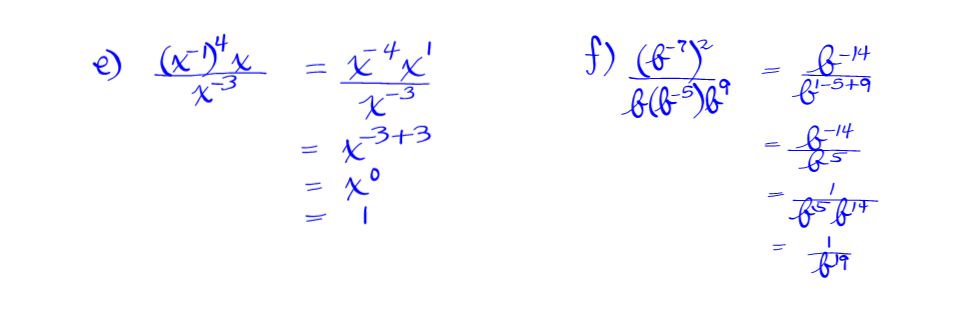 e) (x⁻¹)⁴x / x⁻³ = x⁻⁴x¹ / x⁻³
= x⁻³⁺³
= x⁰
= 1
f) (b⁻⁷)² / b(b⁻⁵)b⁹ = b⁻¹⁴ / b¹⁻⁵⁺⁹
= b⁻¹⁴ / b⁵
= 1 / b⁵b¹⁴
= 1 / b¹⁹